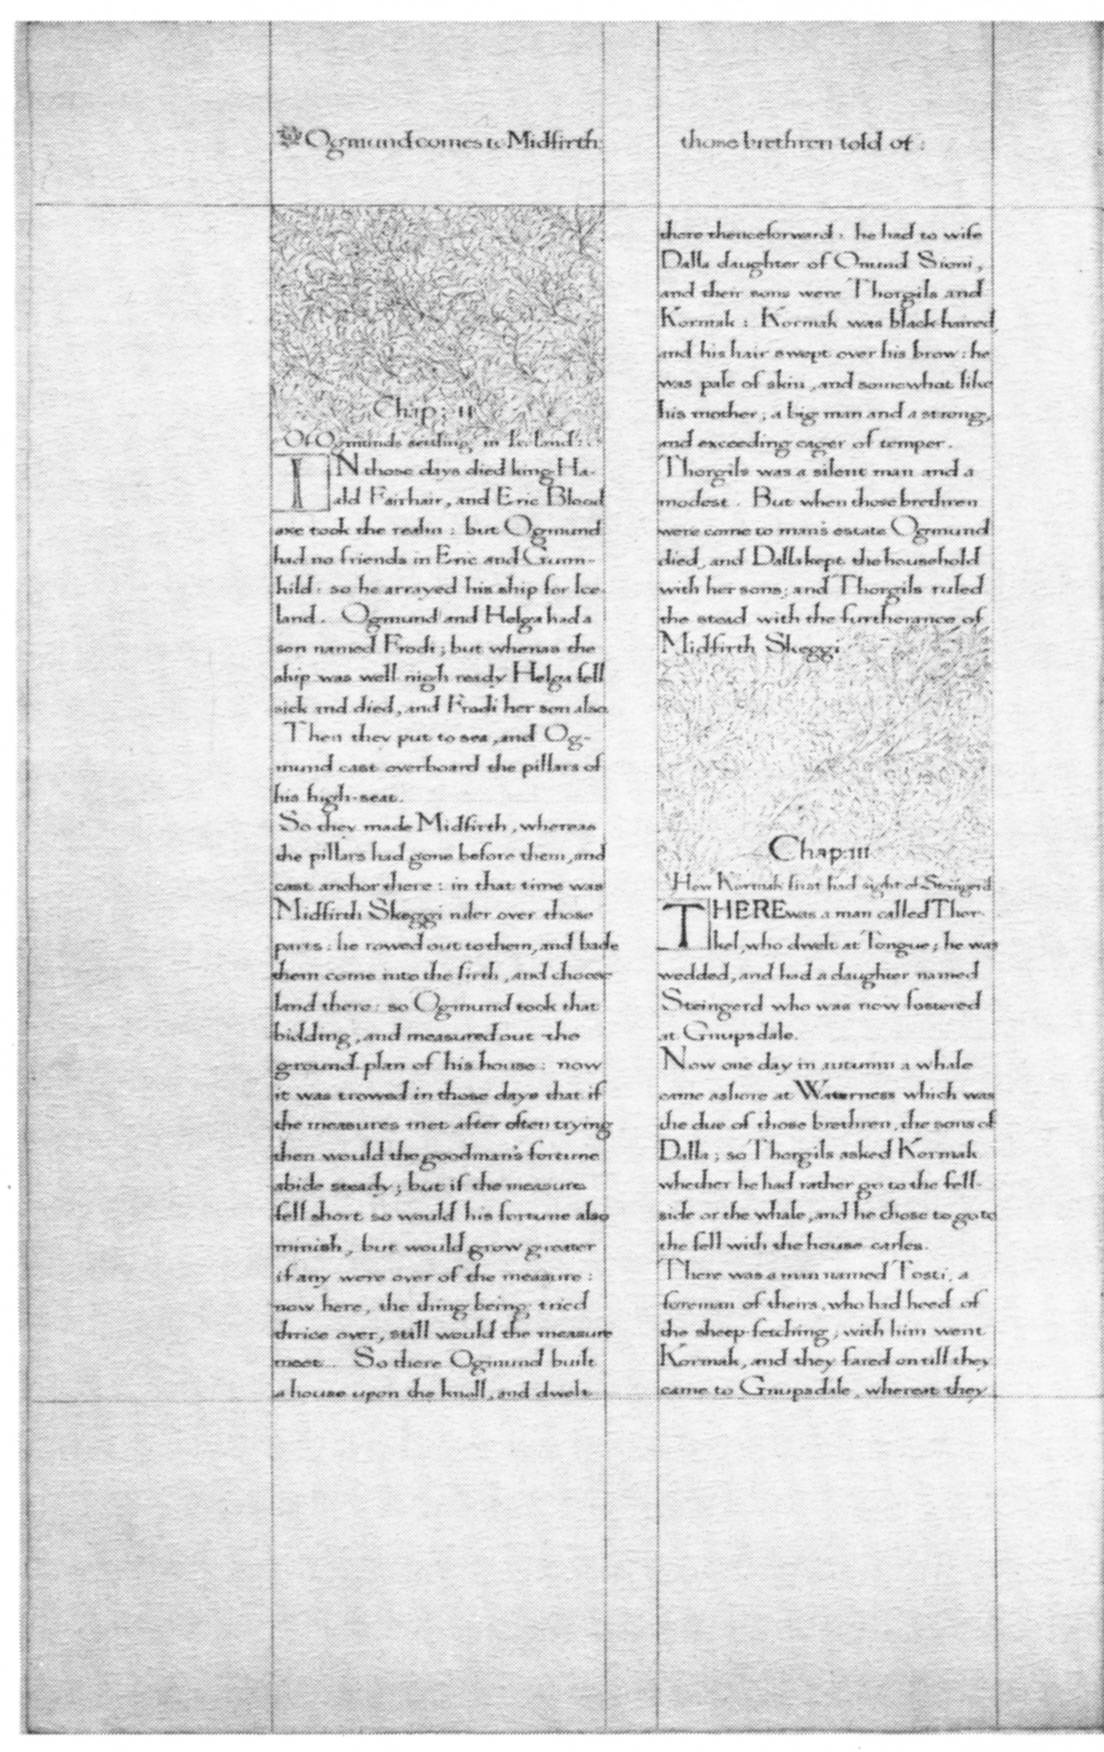 Ogmund comes to Midfirth:
those brethren told of:
Chap: II
Of Ogmunds settling in Iceland:
IN those days died king Ha-
ald Fairhair, and Eric Blood
axe took the realm: but Ogmund
had no friends in Eric and Gunn-
hild: so he arrayed his ship for Ice
land. Ogmund and Helga had a
son named Frodi; but whenas the
ship was well nigh ready Helga fell
sick and died, and Frodi her son also.
Then they put to sea, and Og-
mund cast overboard the pillars of
his high-seat.
So they made Midfirth, whereas
the pillars had gone before them, and
cast anchor there: in that time was
Midfirth Skeggi ruler over those
parts: he rowed out to them, and bade
them come into the firth, and choose
land there: so Ogmund took that
bidding, and measured out the
ground-plan of his house: now
it was trowed in those days that if
the measures met after often trying
then would the goodman's fortune
abide steady; but if the measure
fell short so would his fortune also
minish, but would grow greater
if any were over of the measure:
now here, the thing being tried
thrice over, still would the measure
meet. So there Ogmund built
a house upon the knoll, and dwelt
there thenceforward: he had to wife
Dalla daughter of Onund Sioni,
and their sons were Thorgils and
Kormak: Kormak was black-haired
and his hair swept over his brow: he
was pale of skin, and somewhat like
his mother; a big man and a strong,
and exceeding eager of temper.
Thorgils was a silent man and a
modest. But when those brethren
were come to man's estate Ogmund
died, and Dalla kept the household
with her sons; and Thorgils ruled
the stead with the furtherance of
Midfirth Skeggi
Chap: III
How Kormak first had sight of Steingerd
THERE was a man called Thor-
kel, who dwelt at Tongue; he was
wedded, and had a daughter named
Steingerd who was now fostered
at Gnupsdale.
Now one day in autumn a whale
came ashore at Waterness which was
the due of those brethren, the sons of
Dalla; so Thorgils asked Kormak
whether he had rather go to the fell-
side or the whale, and he chose to go to
the fell with the house-carles.
There was a man named Tosti, a
foreman of theirs, who had heed of
the sheep-fetching, with him went
Kormak, and they fared on till they
came to Gnupsdale, whereat they